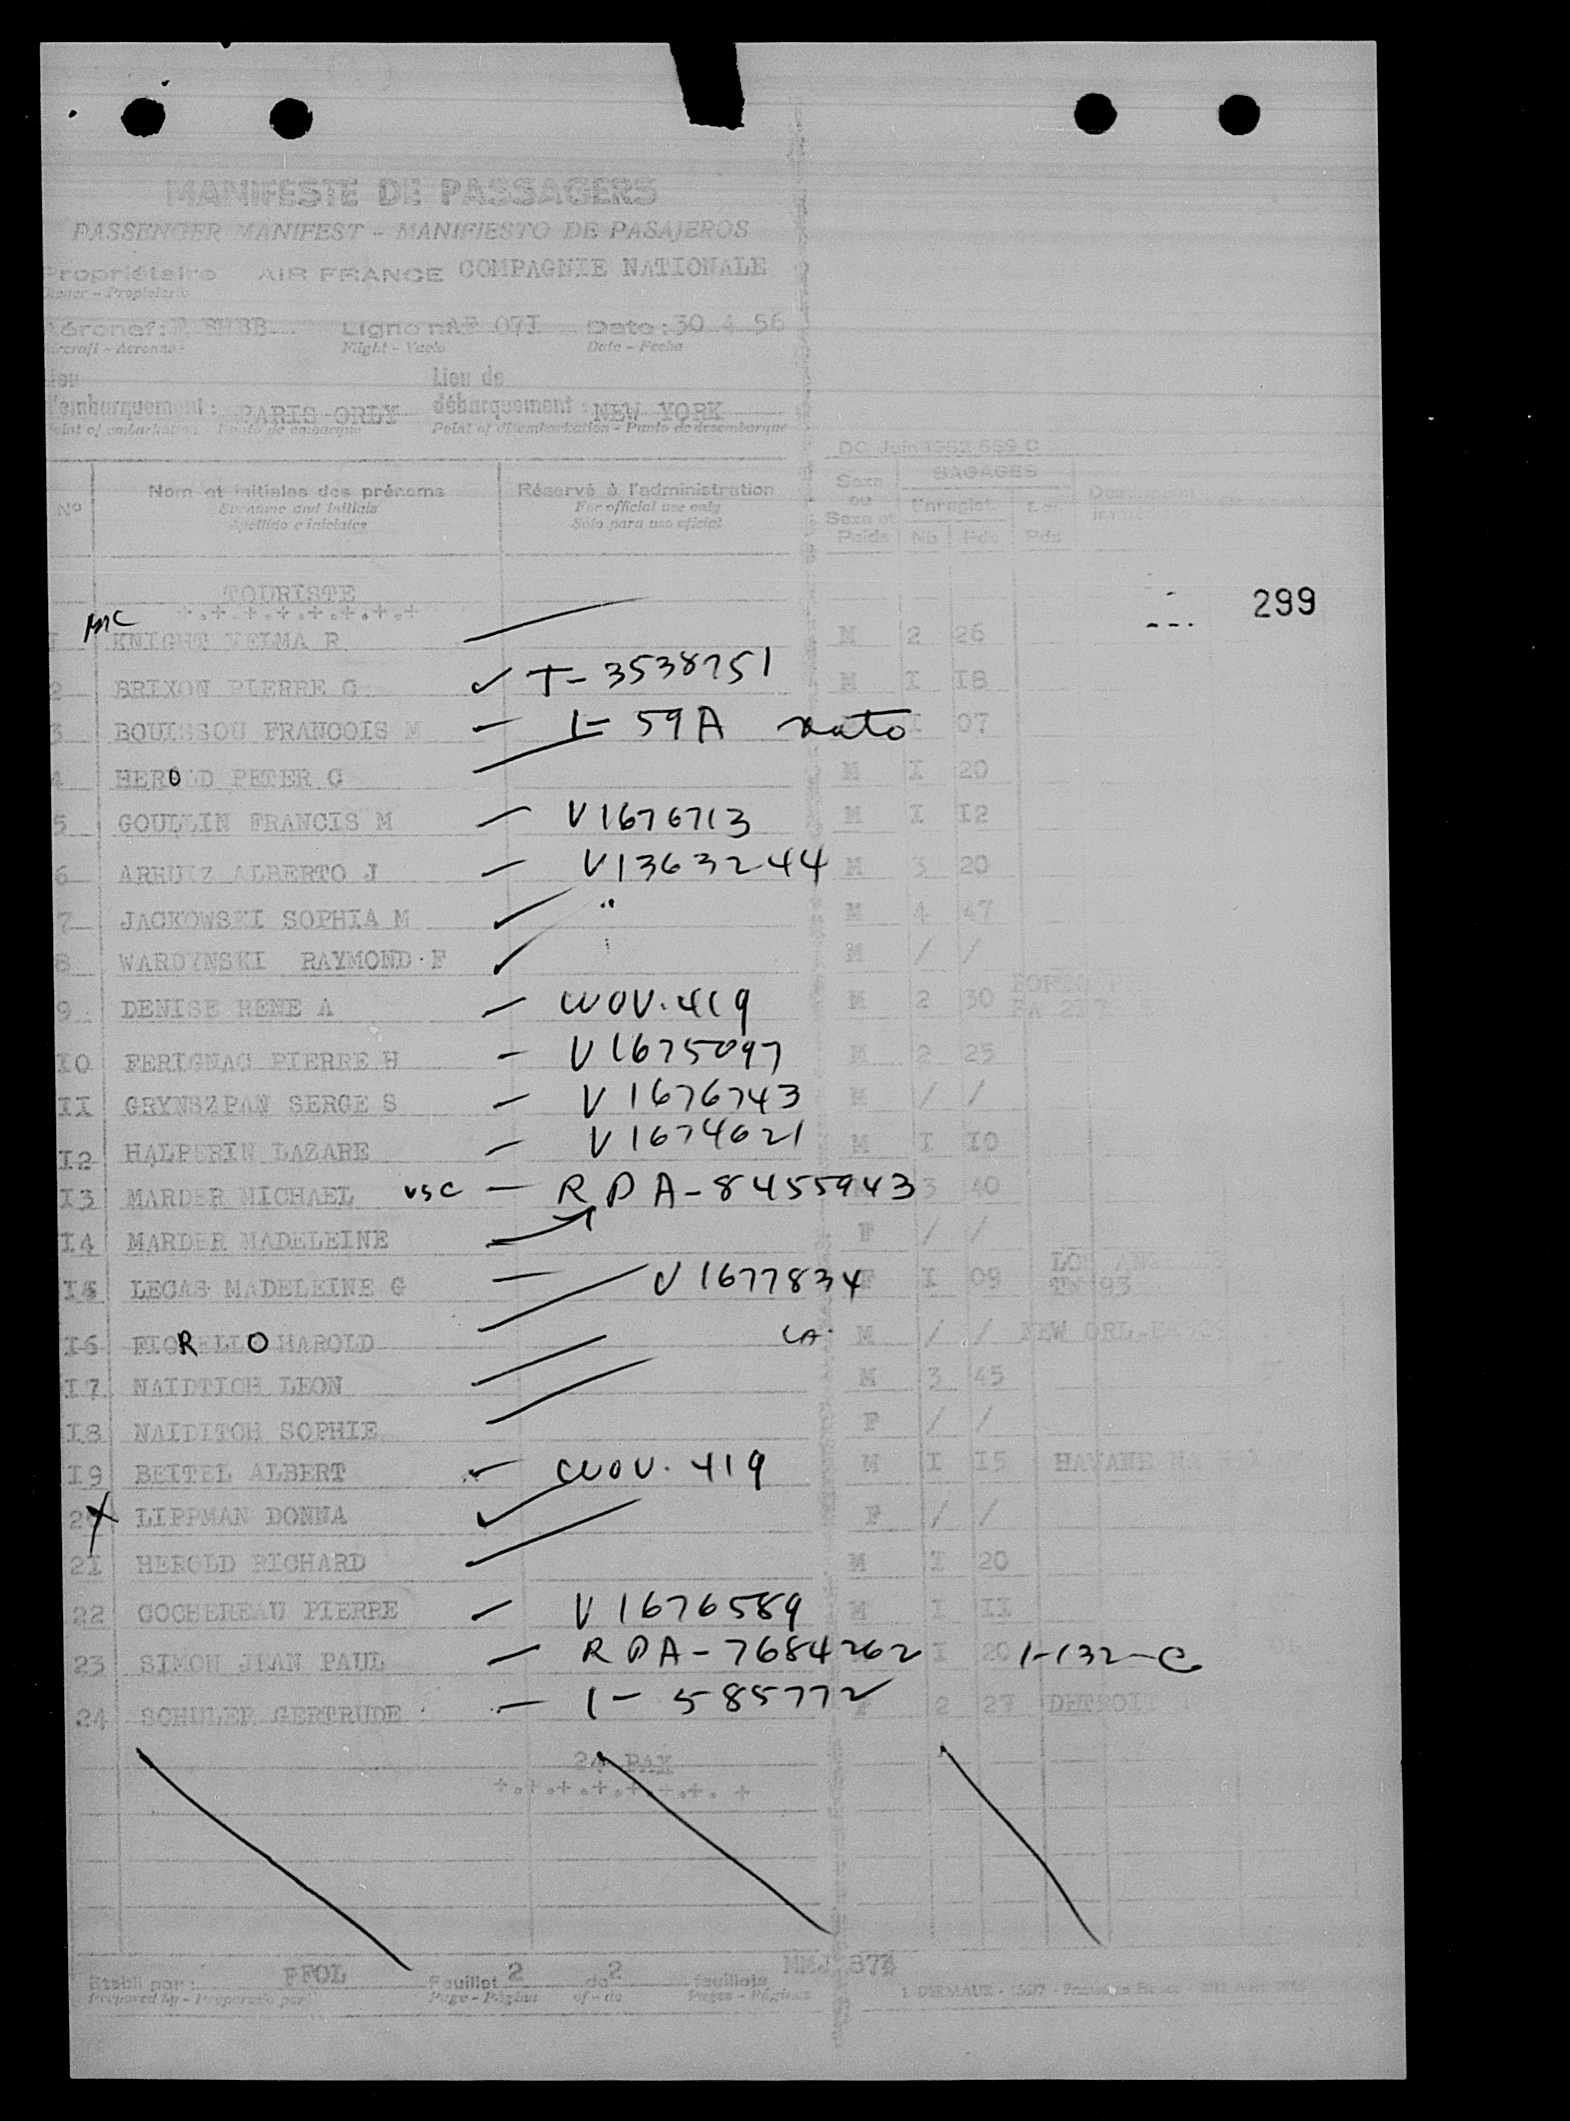 MANIFESTE DE PASSAGERS
PASSENGER MANIFEST - MANIFIESTO DE PASAJEROS
Propriétaire AIR FRANCE COMPAGNIE NATIONALE
Owner - Propietario
Aéronef: F BHBB Ligne n° AF 07I Date: 30 4 56
Aircraft - Aeronave Flight - Vuelo Date - Fecha
Lieu Lieu de
d'embarquement: PARIS ORLY débarquement: NEW YORK
Point of embarkation - Punto de embarque Point of disembarkation - Punto de desembarque
DC Juin 1952 659 C
N° Nom et initiales des prénoms Réservé à l'administration Sexe ou Sexe et Poids BAGAGES
Surname and initials For official use only Enregist.
Apellido e iniciales Sólo para uso oficial Nb Pds Pds
TOURISTE
+.+.+.+.+.+.+.+
299
I KNIGHT VELMA R M 2 26
2 BRIXON PIERRE G ✓ T-3538751 M I I8
3 BOUISSOU FRANCOIS M - 1-59A nato I 07
4 HEROLD PETER C M I 20
5 GOULLIN FRANCIS M - V1676713 M I I2
6 ARRUIZ ALBERTO J - V1363244 M 3 20
7 JACKOWSKI SOPHIA M ✓ " M 4 47
8 WARDYNSKI RAYMOND F ✓ M / /
9 DENISE RENE A - WOV. 419 M 2 30
IO FERIGNAC PIERRE H - V1675097 M 2 25
II GRYNSZPAN SERGE S - V1676743 M / /
I2 HALPERIN LAZARE - V1674621 M I IO
I3 MARDER MICHAEL USC - RPA-8455943 3 40
I4 MARDER MADELEINE F / /
I5 LEGAS MADELEINE G - V1677834 F I 09 LOS ANGELES TW 93
I6 FIORELLO HAROLD M / / NEW ORLEANS
I7 NAIDTICH LEON M 3 45
I8 NAIDITCH SOPHIE F / /
I9 BEITEL ALBERT - WOV. 419 M I I5 HAVANE NA
20 X LIPPMAN DONNA ✓ F / /
2I HEROLD RICHARD M I 20
22 COCHEREAU PIERRE - V1676589 M I II
23 SIMON JEAN PAUL - RPA-7684262 I 20 1-132-C
24 SCHULER GERTRUDE - 1-585772 F 2 27 DETROIT
24 PAX
+.+.+.+.+.+.+.+
Etabli par: FFOL Feuillet 2 de 2 feuillets
Prepared by - Preparado por Page - Página of - de Pages - Páginas